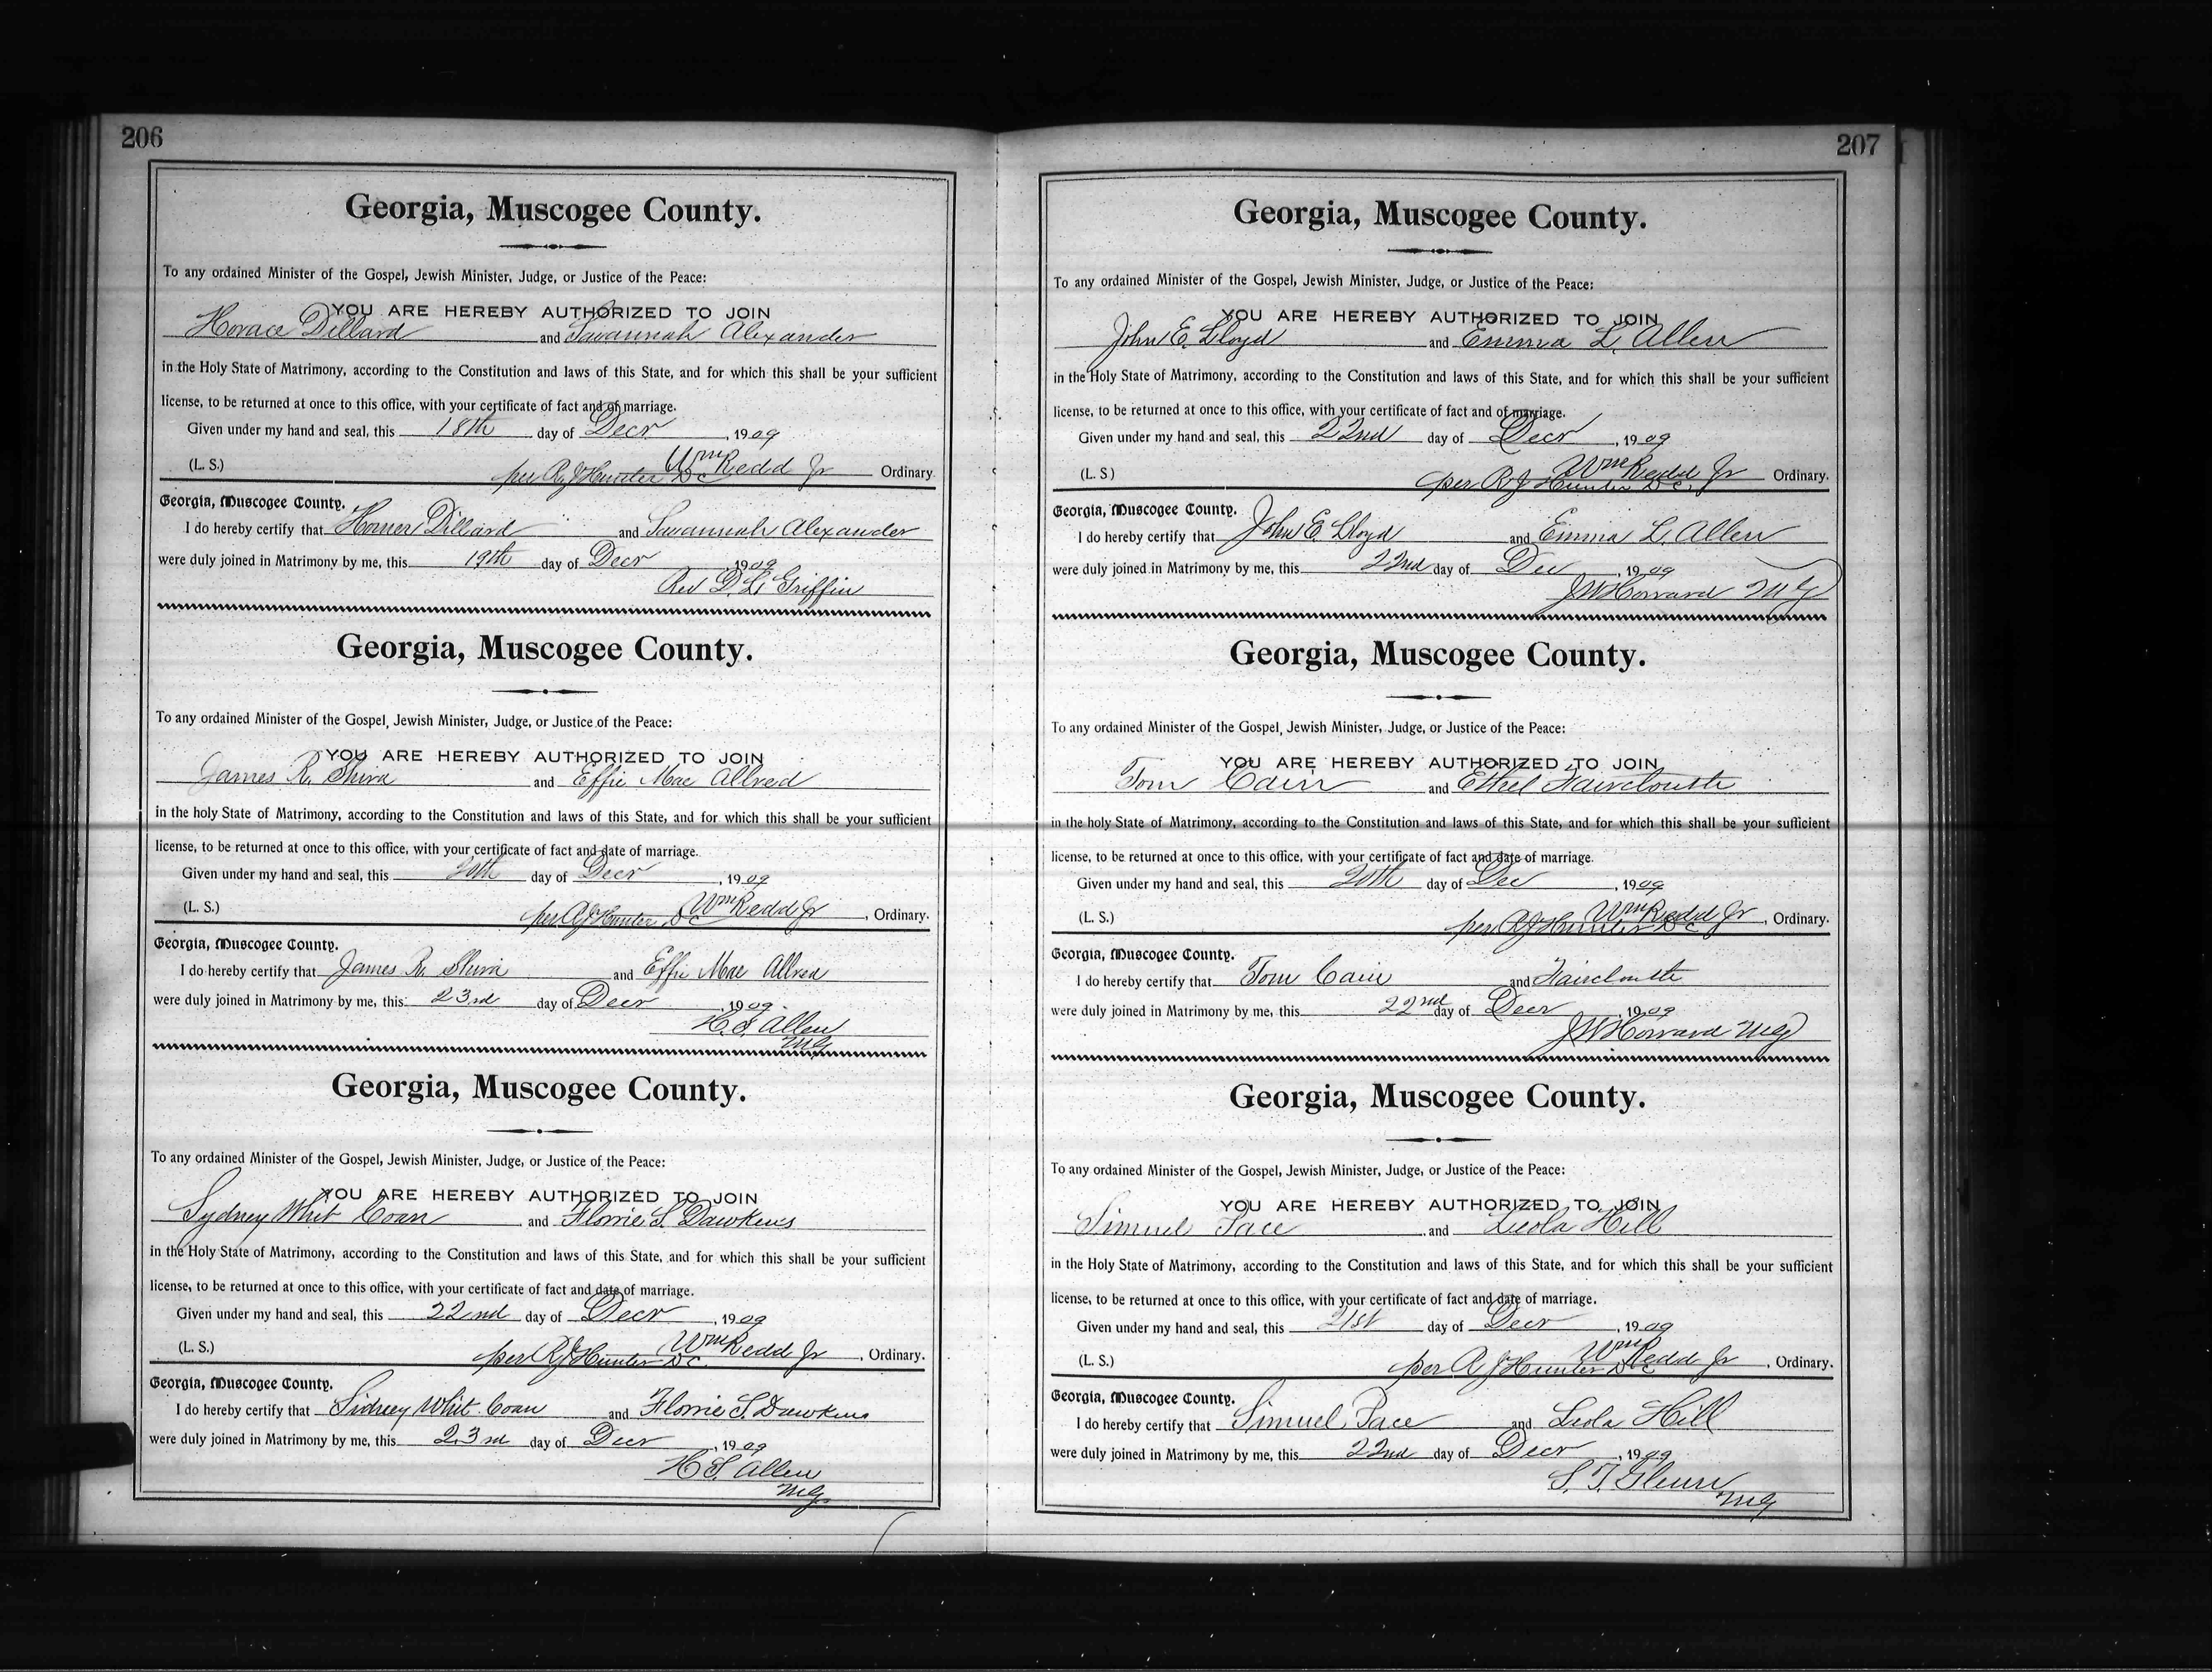 206
Georgia, Muscogee County.
To any ordained Minister of the Gospel, Jewish Minister, Judge, or Justice of the Peace:
YOU ARE HEREBY AUTHORIZED TO JOIN
Horace Dillard and Savannah Alexander
in the Holy State of Matrimony, according to the Constitution and laws of this State, and for which this shall be your sufficient
license, to be returned at once to this office, with your certificate of fact and of marriage.
Given under my hand and seal, this 18th day of Decr , 1909
(L. S.) per R J Hunter D C Wm Redd Jr Ordinary.
Georgia, Muscogee County.
I do hereby certify that Homer Dillard and Savannah Alexander
were duly joined in Matrimony by me, this 19th day of Decr , 1909
Rev D. L. Griffin
Georgia, Muscogee County.
To any ordained Minister of the Gospel, Jewish Minister, Judge, or Justice of the Peace:
YOU ARE HEREBY AUTHORIZED TO JOIN
James R. and Effie Mae Allred
in the holy State of Matrimony, according to the Constitution and laws of this State, and for which this shall be your sufficient
license, to be returned at once to this office, with your certificate of fact and date of marriage.
Given under my hand and seal, this 20th day of Decr , 1909
(L. S.) per R J Hunter D C Wm Redd Jr , Ordinary.
Georgia, Muscogee County.
I do hereby certify that James R. and Effie Mae Allred
were duly joined in Matrimony by me, this 23rd day of Decr , 1909
H. S. Allen
MG
Georgia, Muscogee County.
To any ordained Minister of the Gospel, Jewish Minister, Judge, or Justice of the Peace:
YOU ARE HEREBY AUTHORIZED TO JOIN
Sydney Whit Coan and Florrie S. Dawkins
in the Holy State of Matrimony, according to the Constitution and laws of this State, and for which this shall be your sufficient
license, to be returned at once to this office, with your certificate of fact and date of marriage.
Given under my hand and seal, this 22nd day of Decr , 1909
(L. S.) per R J Hunter D C Wm Redd Jr , Ordinary.
Georgia, Muscogee County.
I do hereby certify that Sidney Whit Coan and Florrie S. Dawkins
were duly joined in Matrimony by me, this 23rd day of Decr , 1909
H S. Allen
MG
207
Georgia, Muscogee County.
To any ordained Minister of the Gospel, Jewish Minister, Judge, or Justice of the Peace:
YOU ARE HEREBY AUTHORIZED TO JOIN
John E. Lloyd and Emma L. Allen
in the Holy State of Matrimony, according to the Constitution and laws of this State, and for which this shall be your sufficient
license, to be returned at once to this office, with your certificate of fact and of marriage.
Given under my hand and seal, this 22nd day of Decr , 1909
(L. S) per R J Hunter D C. Wm Redd Jr Ordinary.
Georgia, Muscogee County.
I do hereby certify that John E. Lloyd and Emma L. Allen
were duly joined in Matrimony by me, this 22nd day of Dec , 1909
J W Howard MG
Georgia, Muscogee County.
To any ordained Minister of the Gospel, Jewish Minister, Judge, or Justice of the Peace:
YOU ARE HEREBY AUTHORIZED TO JOIN
Tom Cain and Ethel Faircloth
in the holy State of Matrimony, according to the Constitution and laws of this State, and for which this shall be your sufficient
license, to be returned at once to this office, with your certificate of fact and date of marriage.
Given under my hand and seal, this 20th day of Dec , 1909
(L. S.) per R J Hunter D C Wm Redd Jr , Ordinary.
Georgia, Muscogee County.
I do hereby certify that Tom Cain and Faircloth
were duly joined in Matrimony by me, this 22nd day of Decr , 1909
J W Howard MG
Georgia, Muscogee County.
To any ordained Minister of the Gospel, Jewish Minister, Judge, or Justice of the Peace:
YOU ARE HEREBY AUTHORIZED TO JOIN
Simuel Pace and Leola Hill
in the Holy State of Matrimony, according to the Constitution and laws of this State, and for which this shall be your sufficient
license, to be returned at once to this office, with your certificate of fact and date of marriage.
Given under my hand and seal, this 21st day of Decr , 1909
(L. S.) per R J Hunter D C Wm Redd Jr , Ordinary.
Georgia, Muscogee County.
I do hereby certify that Simuel Pace and Leola Hill
were duly joined in Matrimony by me, this 22nd day of Decr , 1909
S. T. Glenn
MG